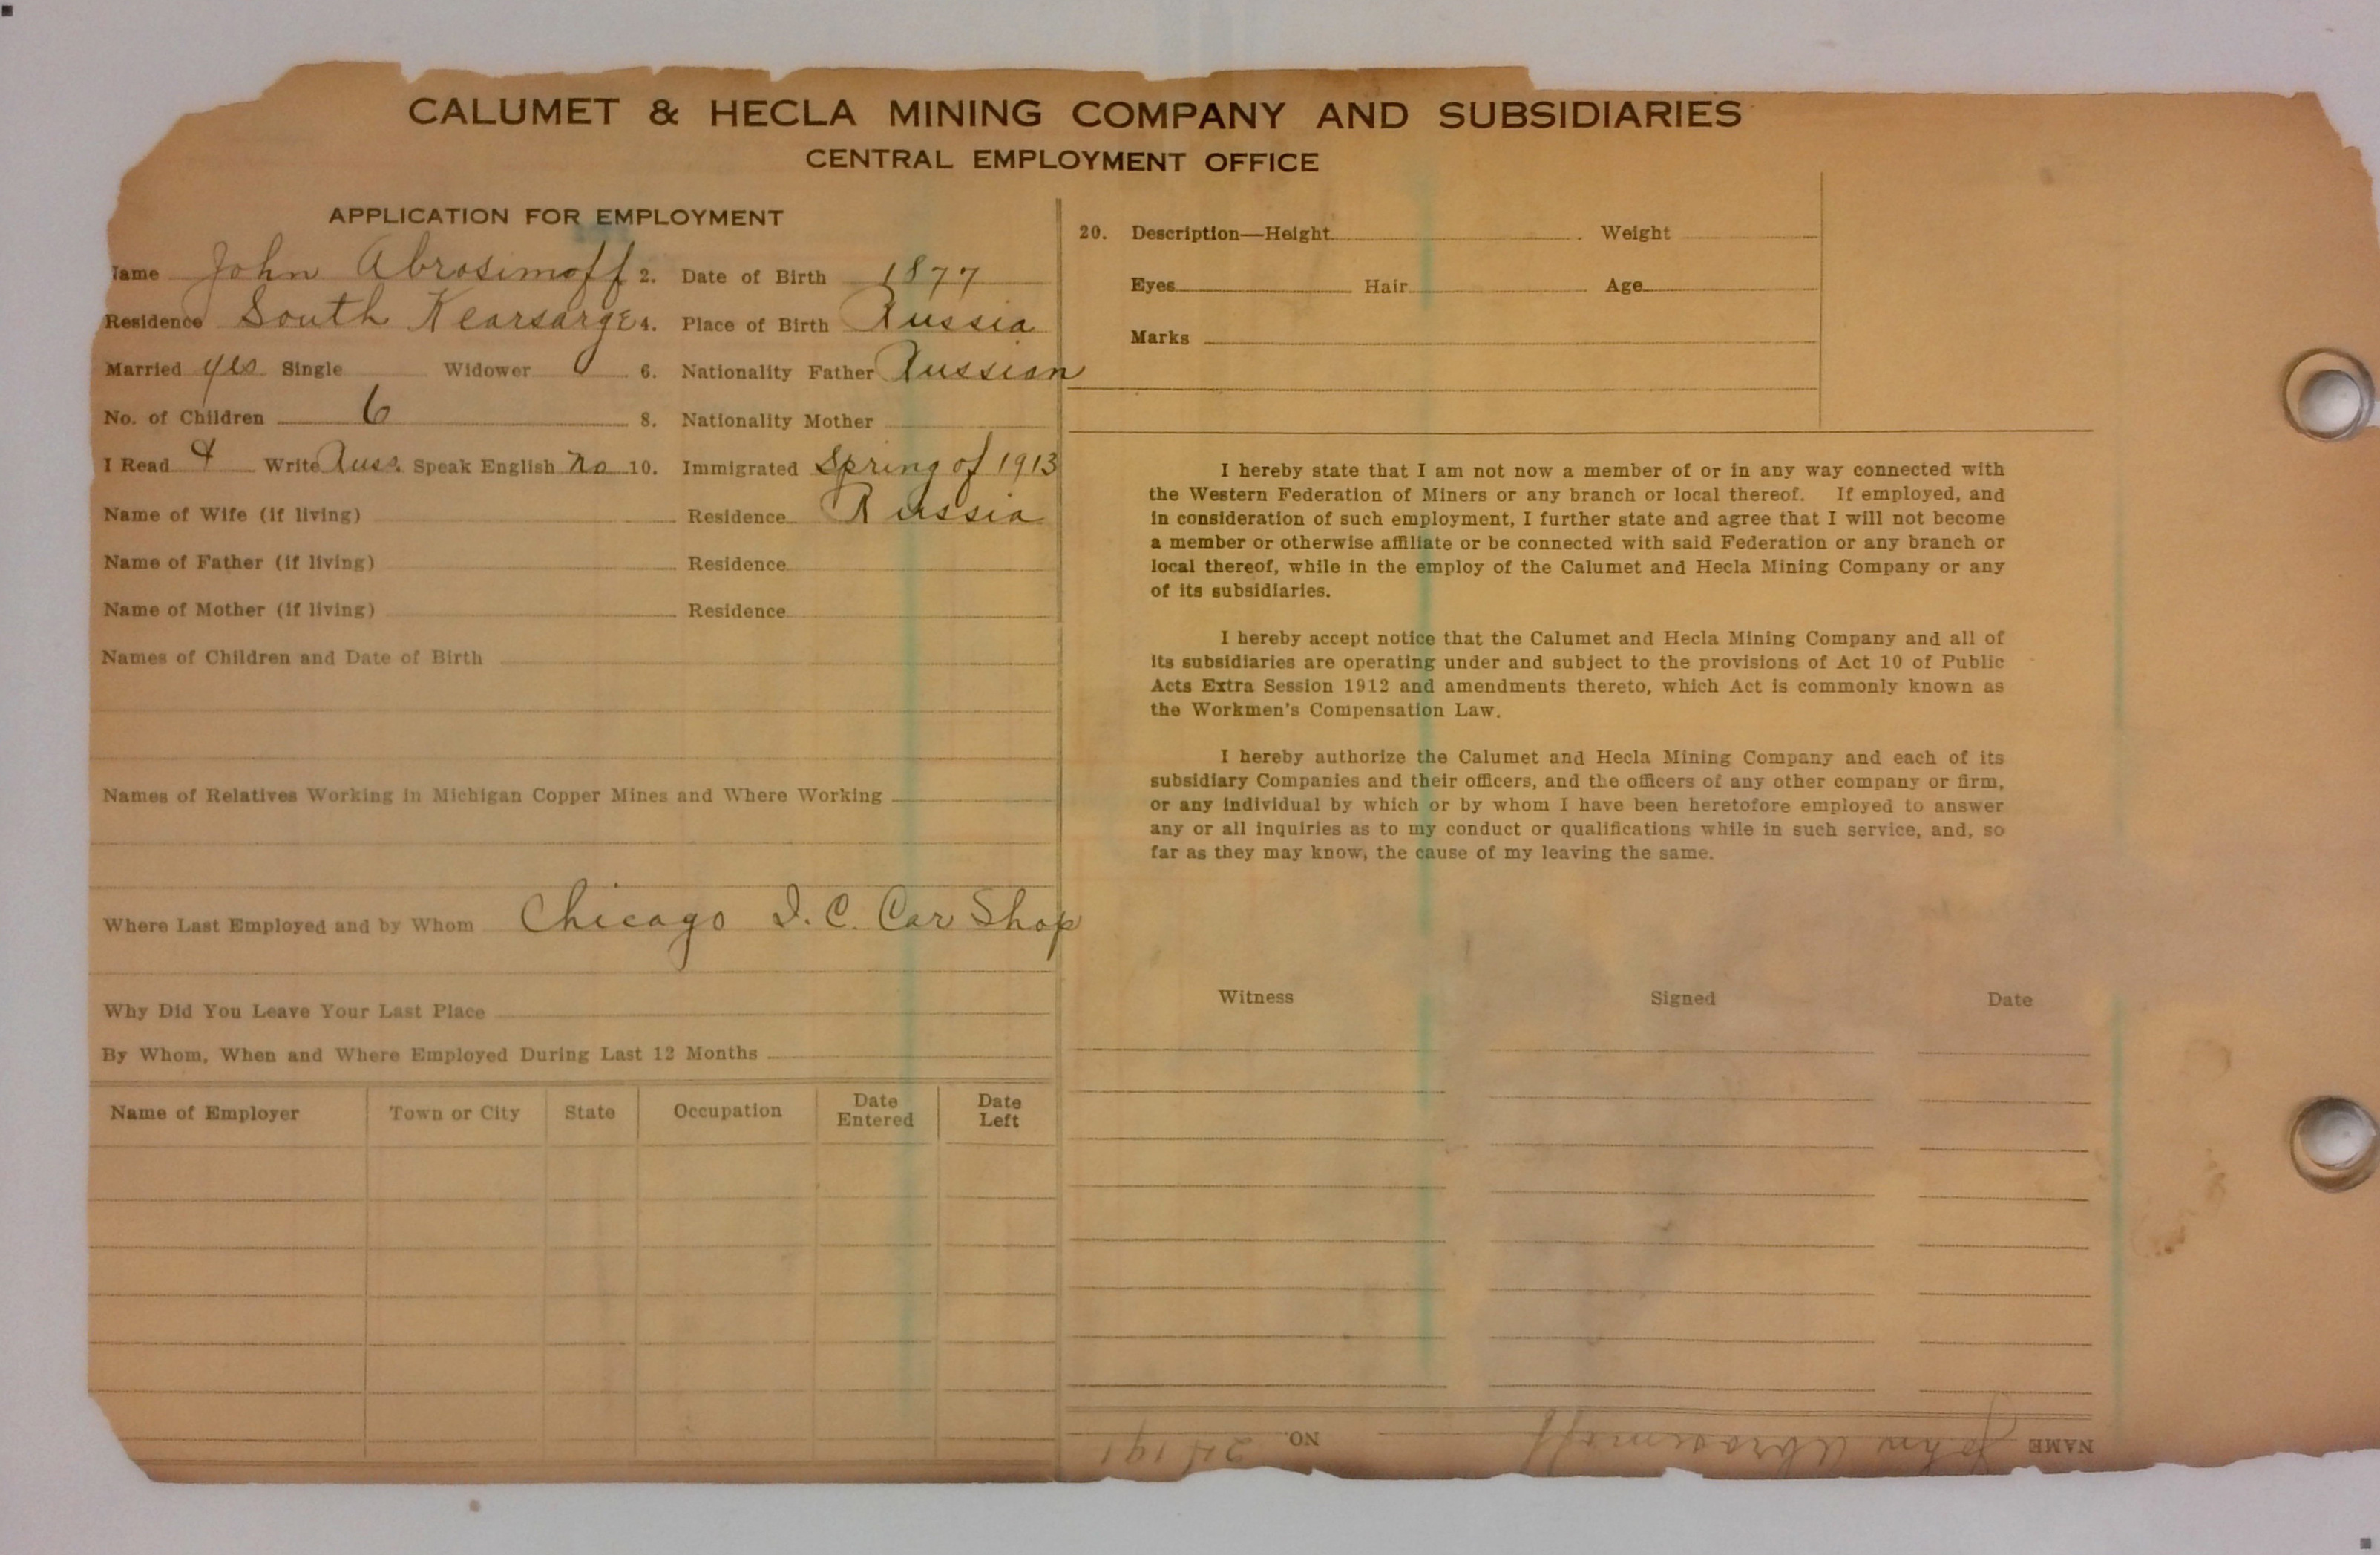 CALUMET & HECLA MINING COMPANY AND SUBSIDIARIES
CENTRAL EMPLOYMENT OFFICE
APPLICATION FOR EMPLOYMENT
Name John Abrosimoff 2. Date of Birth 1877
Residence South Kearsarge 4. Place of Birth Russia
Married yes Single Widower 6. Nationality Father Russian
No. of Children 6 8. Nationality Mother
I Read & Write Russ. Speak English no 10. Immigrated Spring of 1913
Name of Wife (if living) Residence Russia
Name of Father (if living) Residence
Name of Mother (if living) Residence
Names of Children and Date of Birth
Names of Relatives Working in Michigan Copper Mines and Where Working
Where Last Employed and by Whom Chicago I. C. Car Shop
Why Did You Leave Your Last Place
By Whom, When and Where Employed During Last 12 Months
Name of Employer Town or City State Occupation Date Entered Date Left
20. Description—Height Weight
Eyes Hair Age
Marks
I hereby state that I am not now a member of or in any way connected with
the Western Federation of Miners or any branch or local thereof. If employed, and
in consideration of such employment, I further state and agree that I will not become
a member or otherwise affiliate or be connected with said Federation or any branch or
local thereof, while in the employ of the Calumet and Hecla Mining Company or any
of its subsidiaries.
I hereby accept notice that the Calumet and Hecla Mining Company and all of
its subsidiaries are operating under and subject to the provisions of Act 10 of Public
Acts Extra Session 1912 and amendments thereto, which Act is commonly known as
the Workmen's Compensation Law.
I hereby authorize the Calumet and Hecla Mining Company and each of its
subsidiary Companies and their officers, and the officers of any other company or firm,
or any individual by which or by whom I have been heretofore employed to answer
any or all inquiries as to my conduct or qualifications while in such service, and, so
far as they may know, the cause of my leaving the same.
Witness Signed Date
NAME John Abrosimoff NO.